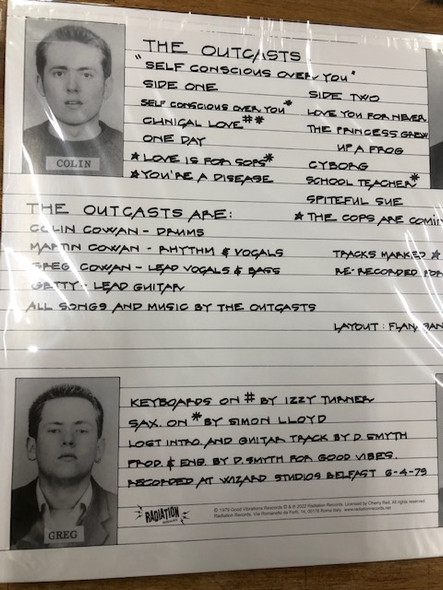 THE OUTCASTS
"SELF CONSCIOUS OVER YOU"
SIDE ONE
SELF CONSCIOUS OVER YOU*
CLINICAL LOVE##
ONE DAY
★LOVE IS FOR SOPS*
★YOU'RE A DISEASE
SIDE TWO
LOVE YOU FOR NEVER
THE PRINCESS GREW
UP A FROG
CYBORG
SCHOOL TEACHER*
SPITEFUL SUE
★THE COPS ARE COMIN
COLIN
THE OUTCASTS ARE:
COLIN COWAN - DRUMS
MARTIN COWAN - RHYTHM & VOCALS
GREG COWAN - LEAD VOCALS & BASS
GETTY - LEAD GUITAR
ALL SONGS AND MUSIC BY THE OUTCASTS
TRACKS MARKED ★
RE-RECORDED FOR
LAYOUT: FLAN
KEYBOARDS ON # BY IZZY TURNER
SAX. ON * BY SIMON LLOYD
LOST INTRO. AND GUITAR TRACK BY D. SMYTH
PROD. & ENG. BY D. SMYTH FOR GOOD VIBES.
RECORDED AT WIZARD STUDIOS BELFAST 6-4-79
GREG
RADIATION
© 1979 Good Vibrations Records ℗ & © 2022 Radiation Records. Licensed by Cherry Red. All rights reserved.
Radiation Records, Via Romanello da Forlì, 14, 00176 Roma Italy www.radiationrecords.net